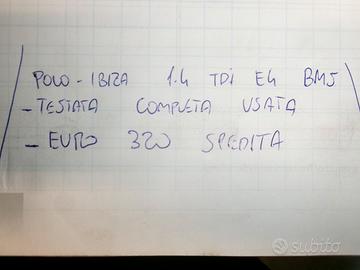 POLO-IBIZA 1.4 TDI E4 BMS
- TESTATA COMPLETA USATA
- EURO 320 SPEDITA
subito